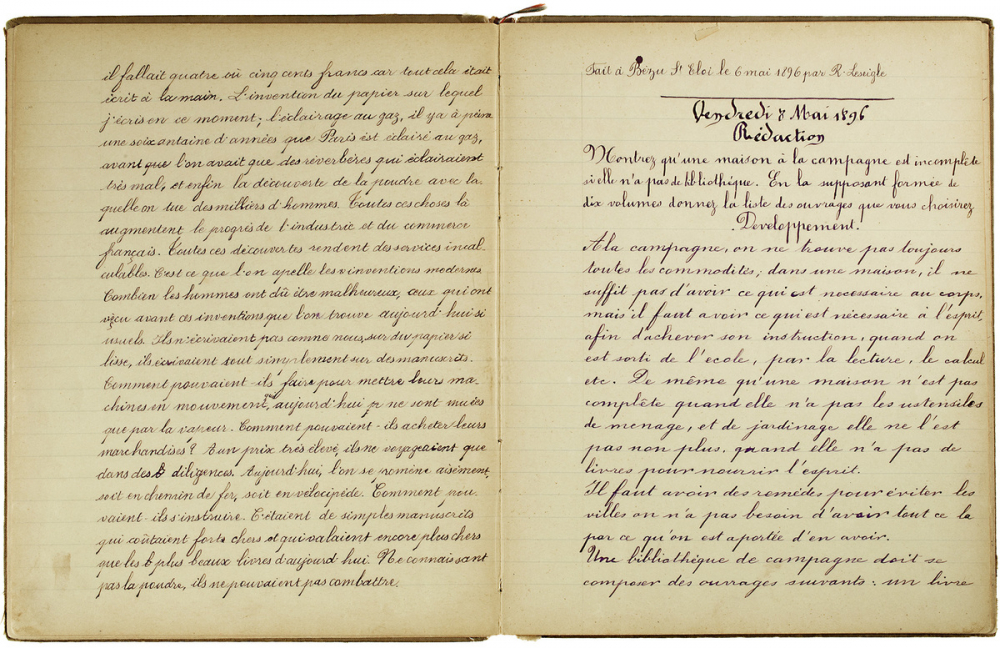 il fallait quatre où cinq cents francs car tout cela était
écrit à la main. L'invention du papier sur lequel
j'écris en ce moment; l'éclairage au gaz, il y a à peine
une soixantaine d'années que Paris est éclairé au gaz,
avant que l'on avait que des réverbères qui éclairaient
très mal, et enfin la découverte de la poudre avec la-
quelle on tue des milliers d'hommes. Toutes ces choses là
augmentent le progrès de l'industrie et du commerce
français. Toutes ces découvertes rendent des services incal-
culables. C'est ce que l'on apelle les inventions modernes.
Combien les hommes ont dû être malheureux, ceux qui ont
vécu avant ces inventions que l'on trouve aujourd'hui si
usuels. Ils n'écrivaient pas comme nous, sur du papier si
lisse, ils écrivaient tout simplement sur des manuscrits.
Comment pouvaient-ils faire pour mettre leurs ma-
chines en mouvement, aujourd'hui ne sont mues
que par la vapeur. Comment pouvaient-ils acheter leurs
marchandises? A un prix très élevé, ils ne voyageaient que
dans des diligences. Aujourd'hui, l'on se promène aisément,
soit en chemin de fer, soit en vélocipède. Comment pou-
vaient-ils s'instruire. C'étaient de simples manuscrits
qui coûtaient forts chers et qui valaient encore plus chers
que les plus beaux livres d'aujourd'hui. Ne connaissant
pas la poudre, ils ne pouvaient pas combattre.
Fait à Bézu St Eloi le 6 mai 1896 par R. Lesuigle
Vendredi 8 Mai 1896
Rédaction
Montrez qu'une maison à la campagne est incomplète
si elle n'a pas de bibliothèque. En la supposant formée de
dix volumes donnez la liste des ouvrages que vous choisirez
Développement.
A la campagne, on ne trouve pas toujours
toutes les commodités; dans une maison, il ne
suffit pas d'avoir ce qui est nécessaire au corps,
mais il faut avoir ce qui est nécessaire à l'esprit,
afin d'achever son instruction, quand on
est sorti de l'école, par la lecture, le calcul
etc. De même qu'une maison n'est pas
complète quand elle n'a pas les ustensiles
de menage, et de jardinage elle ne l'est
pas non plus, quand elle n'a pas de
livres pour nourrir l'esprit.
Il faut avoir des remèdes pour éviter les
villes on n'a pas besoin d'avoir tout ce la
par ce qu'on est aportée d'en avoir.
Une bibliothèque de campagne doit se
composer des ouvrages suivants: un livre